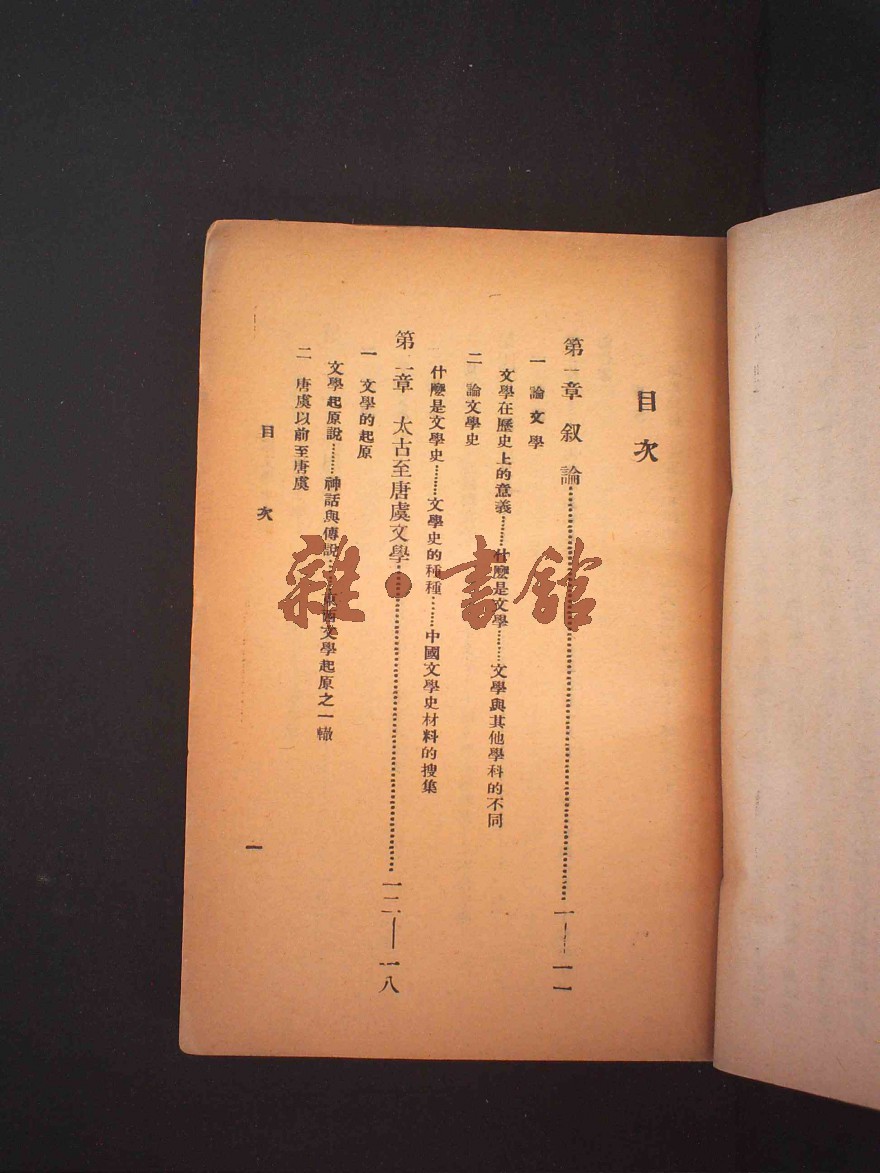 目次
第一章 叙論……一——一一
一 論文學
文學在歷史上的意義……什麼是文學……文學與其他學科的不同
二 論文學史
什麼是文學史……文學史的種種……中國文學史材料的搜集
第二章 太古至唐虞文學……一二——一八
一 文學的起原
文學起原說……神話與傳說……東西文學起原之一轍
二 唐虞以前至唐虞
目次
一
雜·書館